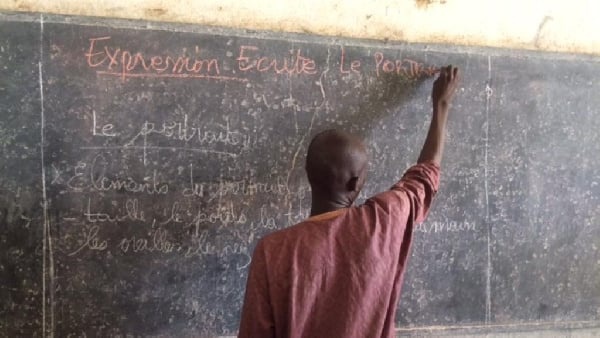 Expression Ecrite, Le PORT
Le portrait
Elements du portrait
- taille, le poids, la main
- les oreilles, le